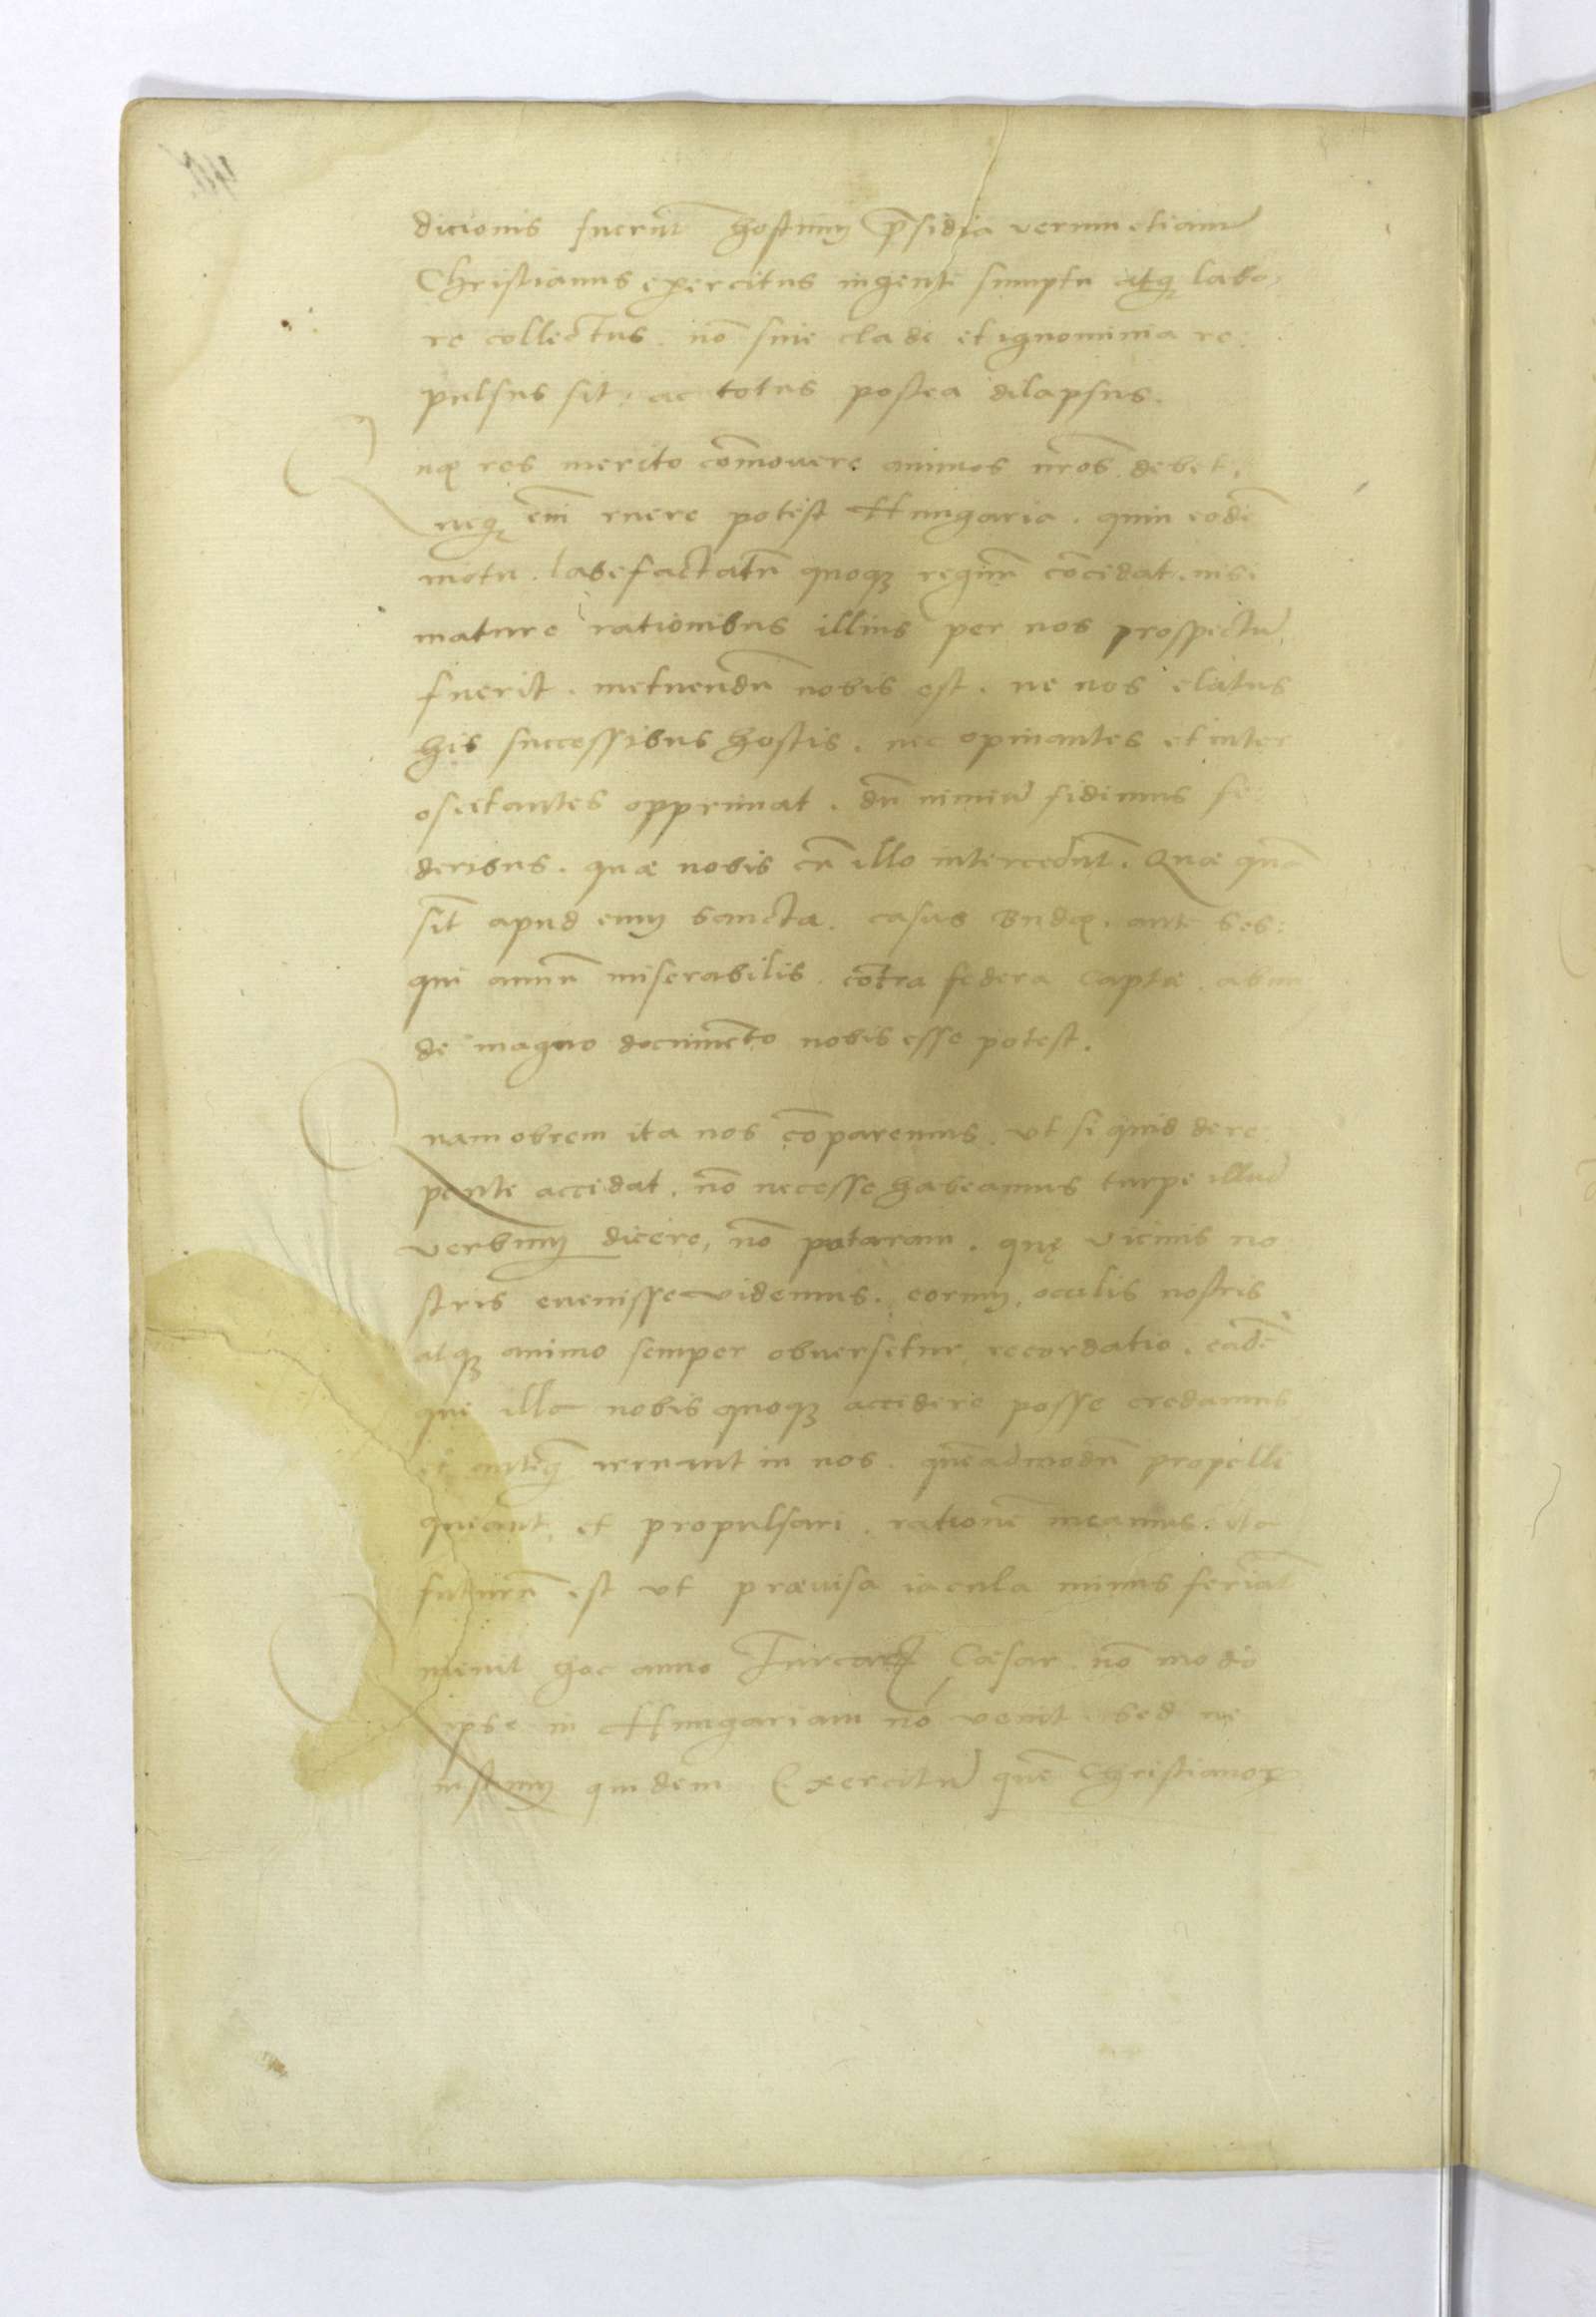 dicionis fuerūt hostium p̄sidia verum etiam
Christianus exercitus ingenti sumptu atq; labo,
re collectus. nō sine clade et ignominia re:
pulsus sit. ac totus postea dilapsus.
Quę res merito com̄ouere animos nr̄os debet.
neq; em̄ ruere potest Hungaria. quin eodē
motu. labefactatū quoq; regnū cōcidat. nisi
mature rationibus illius per nos prospectū
fuerit. metuendū nobis est. ne nos elatus
his successibus hostis. nec opinantes et inter
oscitantes opprimat. dū nimiū fidimus fe:
deribus. quæ nobis cū illo intercedūt. Quæ quā
sīt apud eum sancta. casus Budę. ante ses:
qui annū miserabilis. cōtra federa captæ. abun
de magno documēto nobis esse potest.
Quamobrem ita nos cōparemus. vt si quid dere
pente accidat. nō necesse habeamus turpe illud
verbum dicere, nō putaram. quę vicinis no
stris euenisse videmus. eorum, oculis nostris
atq; animo semper obuersetur recordatio. eadē
que illa nobis quoq; accidere posse credamus
et anteq̄ irruant in nos. quēadmodū propelli
queant et propulsari. rationē ineamus. ita
futurū est vt præuisa iacula minus feriāt
Quieuit hoc anno Turcarꝝ Cæsar. nō modo
ipse in Hungariam nō venit. sed ne
iustum quidem Exercitū quē Christianoꝝ